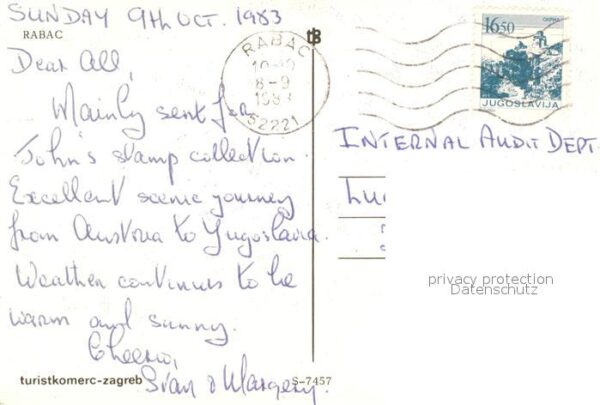 SUNDAY 9th OCT. 1983
RABAC
Dear All,
Mainly sent for
John's stamp collection.
Excellent scenic journey
from Austria to Yugoslavia.
Weather continues to be
warm and sunny.
Cheerio,
& Margery.
turistkomerc-zagreb
S-7457
RABAC
8-9
1983
52221
16.50
JUGOSLAVIJA
INTERNAL AUDIT DEPT.
privacy protection
Datenschutz